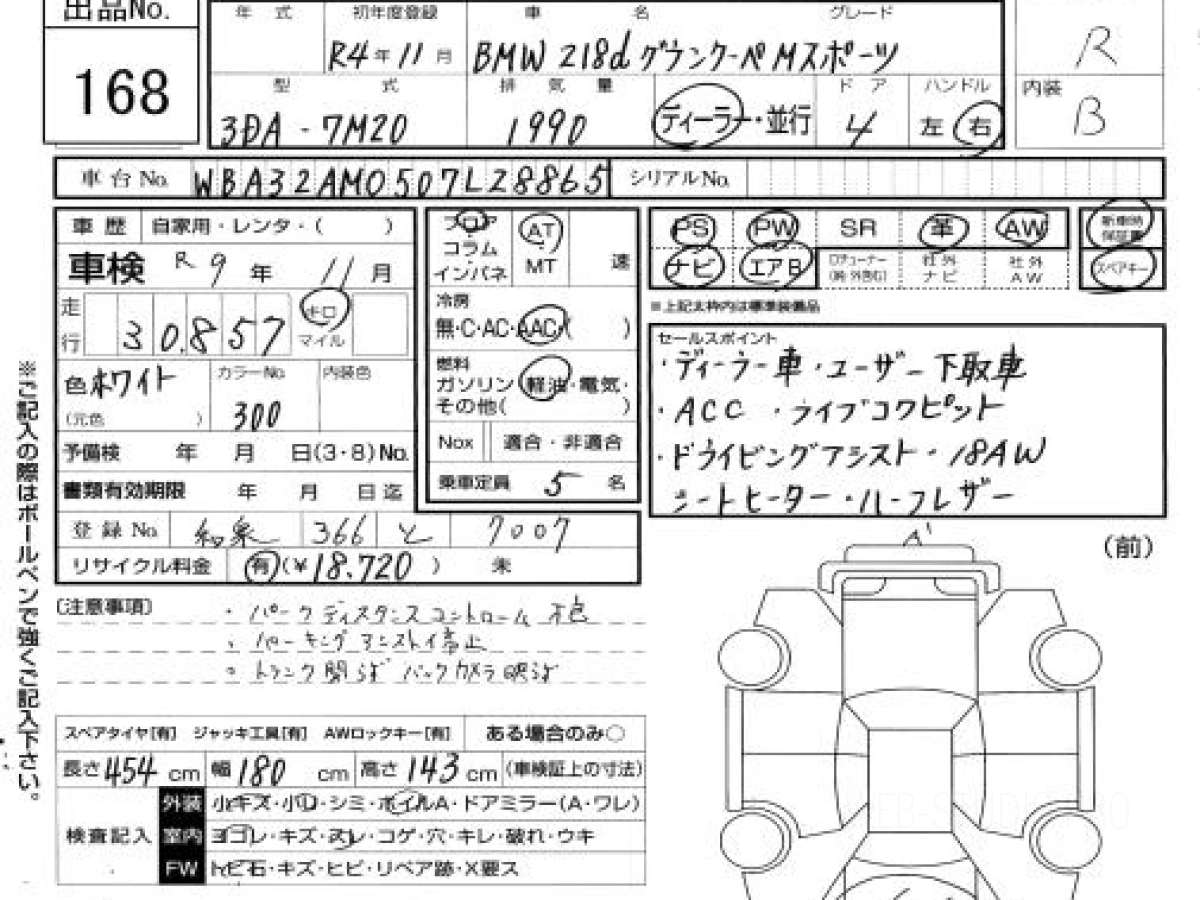 出品No.
168
年式 初年度登録 車名 グレード
R4年11月 BMW 218d グランクーペ Mスポーツ
R
型式 排気量 ドア ハンドル
3DA-7M20 1990 ディーラー・並行 4 左 右
内装 B
車台No. WBA32AM0507L28865 シリアルNo.
車歴 自家用・レンタ・( )
車検 R9年 11月
走行 30.857 キロ マイル
色 ホワイト カラーNo 300 内装色
(元色 )
予備検 年 月 日(3・8)No.
書類有効期限 年 月 日迄
フロア コラム インパネ AT MT 速
冷房
無・C・AC・AAC( )
燃料
ガソリン・軽油・電気・
その他( )
Nox 適合・非適合
乗車定員 5 名
PS PW SR 革 AW 新車時保証書
ナビ エアB 社外ナビ 社外AW スペアキー
※上記太枠内は標準装備品
セールスポイント
・ディーラー車・ユーザー下取車
・ACC ・ライブコクピット
・ドライビングアシスト・18AW
シートヒーター・ハーフレザー
登録No 366 と 7007
リサイクル料金 有(¥18.720) 未
(注意事項)
・パークディスタンスコントロール不良
・パーキングアシスト停止
・トランク開らず バックカメラ映らず
※ご記入の際はボールペンで強くご記入下さい。
スペアタイヤ[有] ジャッキ工具[有] AWロックキー[有] ある場合のみ○
長さ454cm 幅180cm 高さ143cm (車検証上の寸法)
検査記入
外装 小キズ・小凹・シミ・ホイルA・ドアミラー(A・ワレ)
室内 ヨゴレ・キズ・スレ・コゲ・穴・キレ・破れ・ウキ
FW トビ石・キズ・ヒビ・リペア跡・X要ス
A1
(前)